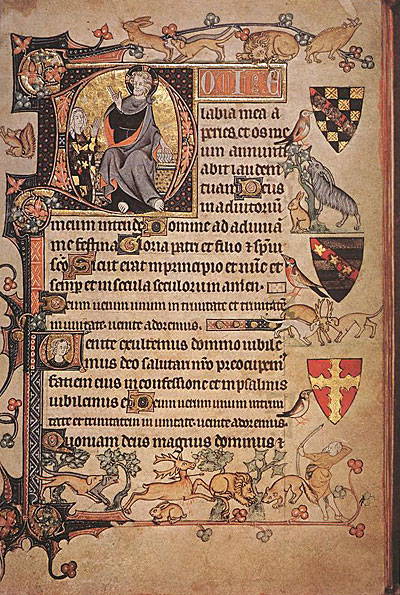 labia mea a
peries et os me
um annunti
abit laudem
tuam Deus
in adiutorium
meum intende Domine ad adiuua
me festina Gloria patri et filio et spui
sco Sicut erat in principio et nunc et
semp et in secula seculorum amen
Deum uerum unum in trinitate et trinitatem
in unitate uenite adoremus
Uenite exultemus domino iubile
mus deo salutari nro preocupem
faciem eius in confessione et in psalmis
iubilemus ei Deum uerum unum in trini
tate et trinitatem in unitate uenite adoremus
Quoniam deus magnus dominus et